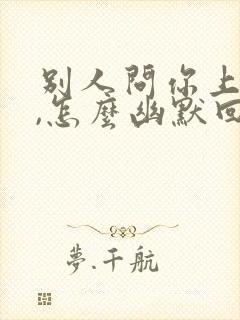 別人問你上
,怎麼幽默回
夢.千航